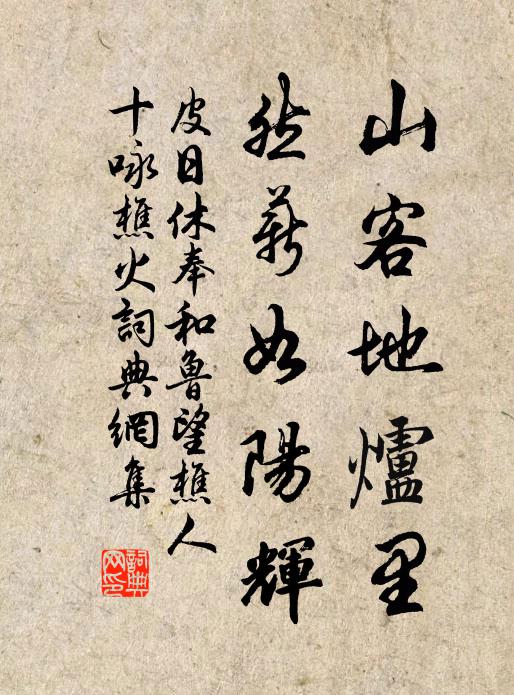 山客地爐里
然薪如陽輝
皮日休奉和魯望樵人
十咏樵火詞典網集
詞典网印